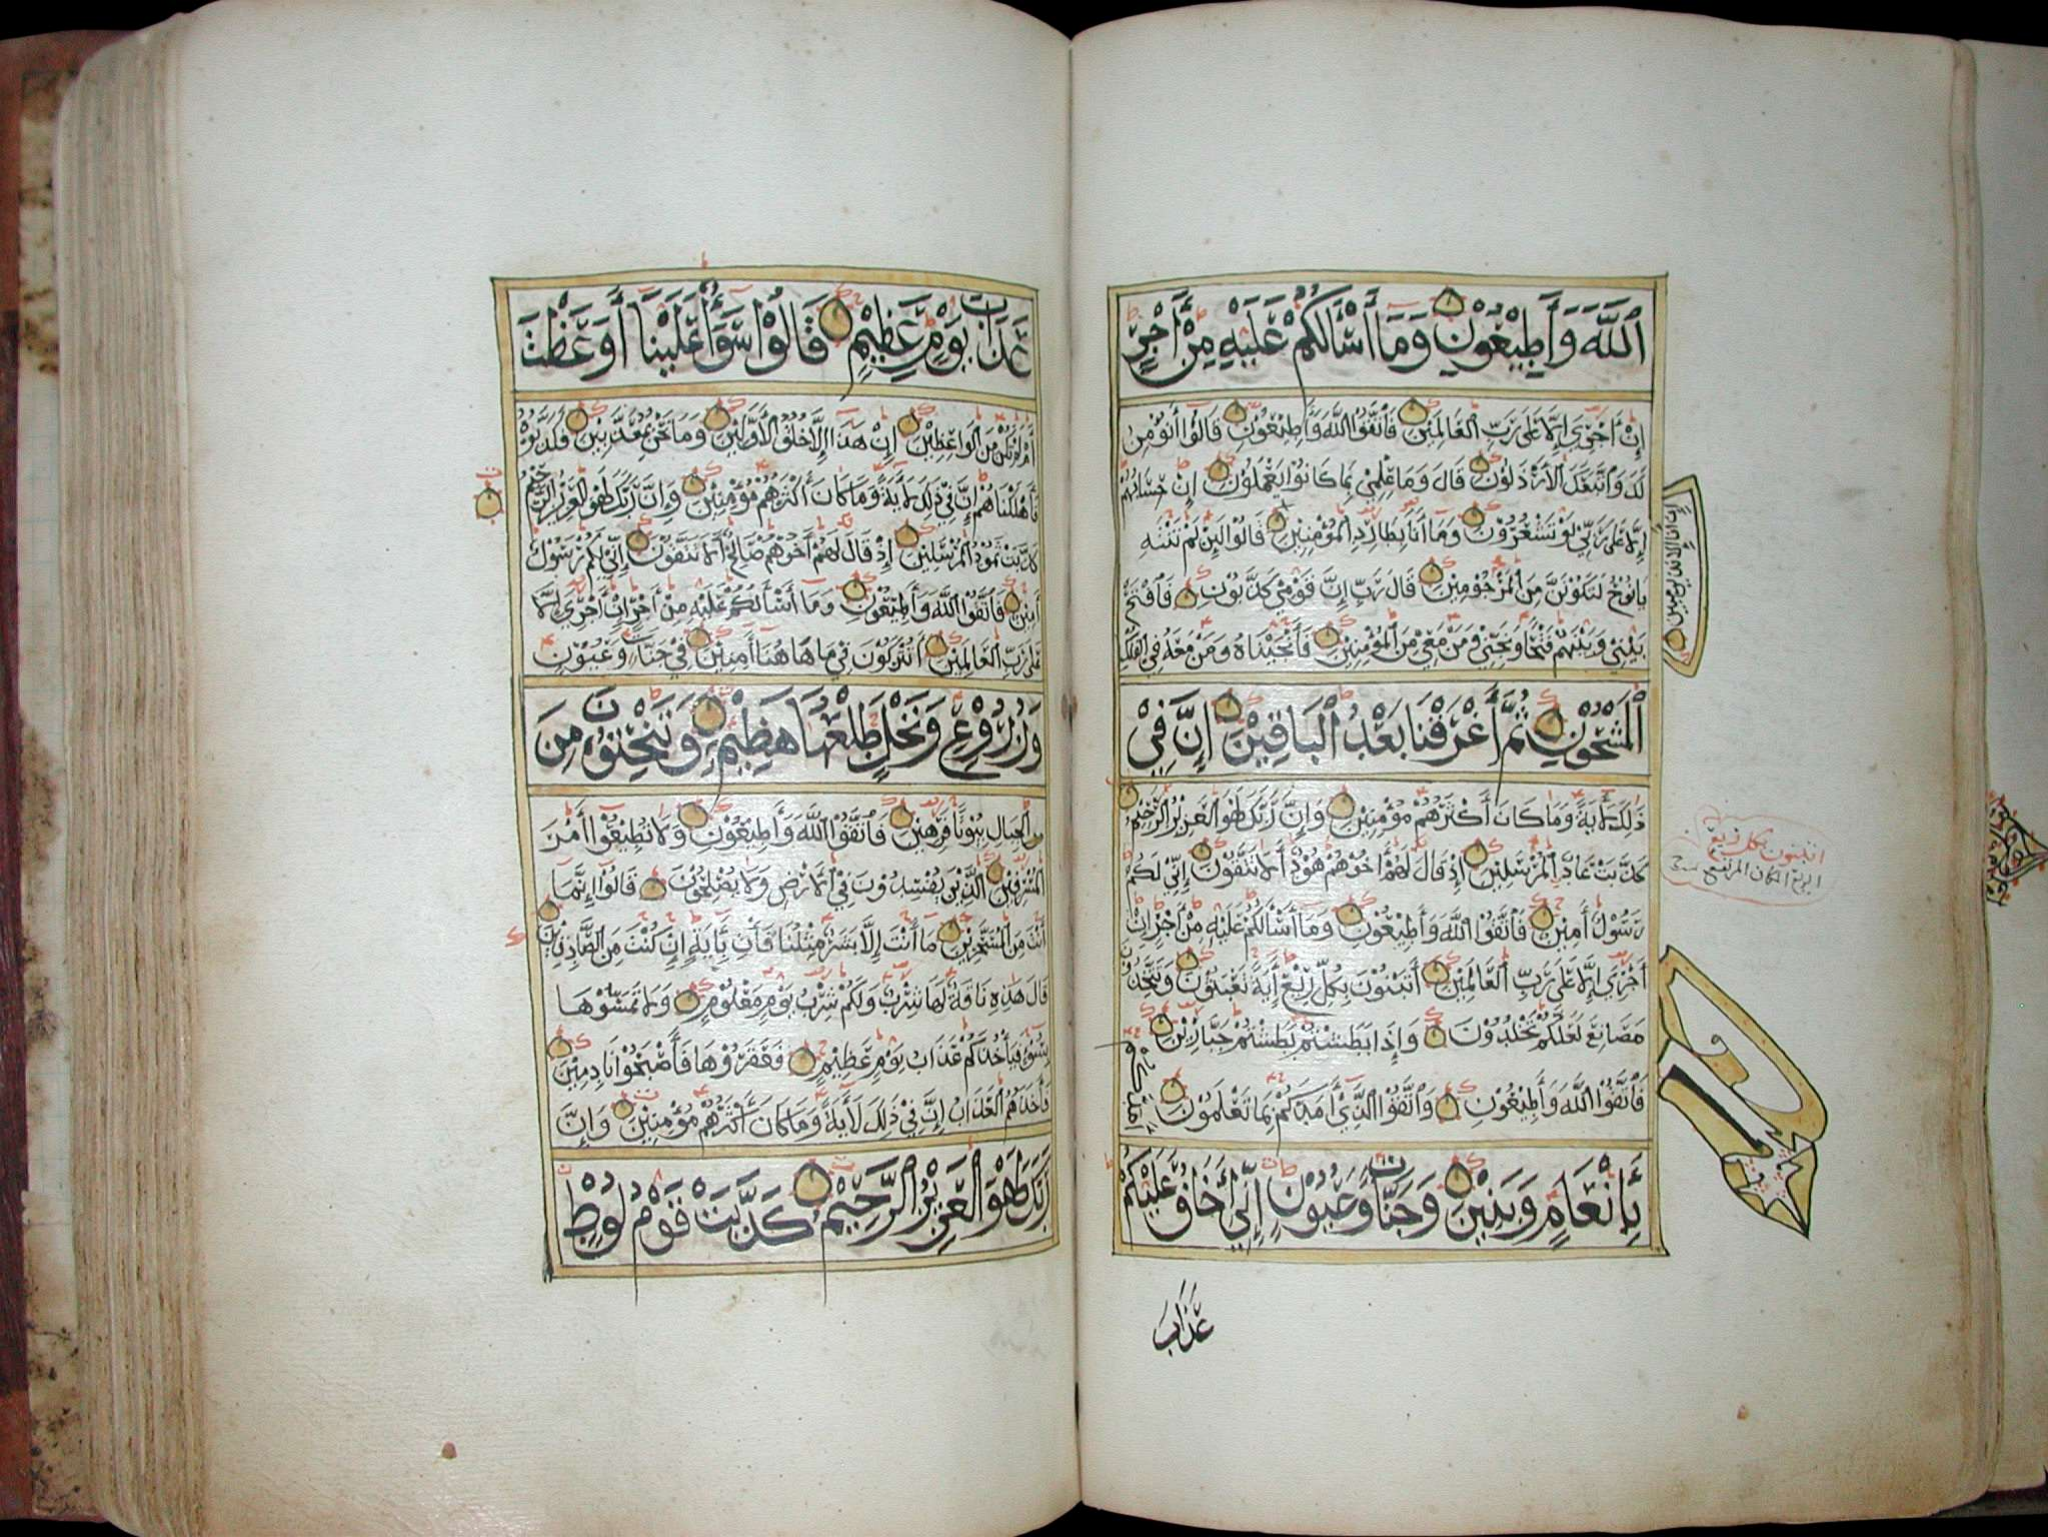 اللَّهَ وَأَطِيعُونِ وَمَا أَسْأَلُكُمْ عَلَيْهِ مِنْ أَجْرٍ
إِنْ أَجْرِيَ إِلَّا عَلَى رَبِّ الْعَالَمِينَ فَاتَّقُوا اللَّهَ وَأَطِيعُونِ قَالُوا أَنُؤْمِنُ
لَكَ وَاتَّبَعَكَ الْأَرْذَلُونَ قَالَ وَمَا عِلْمِي بِمَا كَانُوا يَعْمَلُونَ إِنْ حِسَابُهُمْ
إِلَّا عَلَى رَبِّي لَوْ تَشْعُرُونَ وَمَا أَنَا بِطَارِدِ الْمُؤْمِنِينَ قَالُوا لَئِنْ لَمْ تَنْتَهِ
إِنْ أَنَا إِلَّا نَذِيرٌ مُبِينٌ
يَا نُوحُ لَتَكُونَنَّ مِنَ الْمَرْجُومِينَ قَالَ رَبِّ إِنَّ قَوْمِي كَذَّبُونِ فَافْتَحْ
بَيْنِي وَبَيْنَهُمْ فَتْحًا وَنَجِّنِي وَمَنْ مَعِيَ مِنَ الْمُؤْمِنِينَ فَأَنْجَيْنَاهُ وَمَنْ مَعَهُ فِي الْفُلْكِ
الْمَشْحُونِ ثُمَّ أَغْرَقْنَا بَعْدُ الْبَاقِينَ إِنَّ فِي
ذَلِكَ لَآيَةً وَمَا كَانَ أَكْثَرُهُمْ مُؤْمِنِينَ وَإِنَّ رَبَّكَ لَهُوَ الْعَزِيزُ الرَّحِيمُ
كَذَّبَتْ عَادٌ الْمُرْسَلِينَ إِذْ قَالَ لَهُمْ أَخُوهُمْ هُودٌ أَلَا تَتَّقُونَ إِنِّي لَكُمْ
رَسُولٌ أَمِينٌ فَاتَّقُوا اللَّهَ وَأَطِيعُونِ وَمَا أَسْأَلُكُمْ عَلَيْهِ مِنْ أَجْرٍ إِنْ
أَجْرِيَ إِلَّا عَلَى رَبِّ الْعَالَمِينَ أَتَبْنُونَ بِكُلِّ رِيعٍ آيَةً تَعْبَثُونَ وَتَتَّخِذُونَ
مَصَانِعَ لَعَلَّكُمْ تَخْلُدُونَ وَإِذَا بَطَشْتُمْ بَطَشْتُمْ جَبَّارِينَ
فَاتَّقُوا اللَّهَ وَأَطِيعُونِ وَاتَّقُوا الَّذِي أَمَدَّكُمْ بِمَا تَعْلَمُونَ أَمَدَّكُمْ
بِأَنْعَامٍ وَبَنِينَ وَجَنَّاتٍ وَعُيُونٍ إِنِّي أَخَافُ عَلَيْكُمْ
عَذَابَ
اتبنون بكل ريع
الريع المكان المرتفع
عَذَابَ يَوْمٍ عَظِيمٍ قَالُوا سَوَاءٌ عَلَيْنَا أَوَعَظْتَ
أَمْ لَمْ تَكُنْ مِنَ الْوَاعِظِينَ إِنْ هَذَا إِلَّا خُلُقُ الْأَوَّلِينَ وَمَا نَحْنُ بِمُعَذَّبِينَ فَكَذَّبُوهُ
فَأَهْلَكْنَاهُمْ إِنَّ فِي ذَلِكَ لَآيَةً وَمَا كَانَ أَكْثَرُهُمْ مُؤْمِنِينَ وَإِنَّ رَبَّكَ لَهُوَ الْعَزِيزُ الرَّحِيمُ
كَذَّبَتْ ثَمُودُ الْمُرْسَلِينَ إِذْ قَالَ لَهُمْ أَخُوهُمْ صَالِحٌ أَلَا تَتَّقُونَ إِنِّي لَكُمْ رَسُولٌ
أَمِينٌ فَاتَّقُوا اللَّهَ وَأَطِيعُونِ وَمَا أَسْأَلُكُمْ عَلَيْهِ مِنْ أَجْرٍ إِنْ أَجْرِيَ إِلَّا
عَلَى رَبِّ الْعَالَمِينَ أَتُتْرَكُونَ فِي مَا هَاهُنَا آمِنِينَ فِي جَنَّاتٍ وَعُيُونٍ
وَزُرُوعٍ وَنَخْلٍ طَلْعُهَا هَضِيمٌ وَتَنْحِتُونَ مِنَ
الْجِبَالِ بُيُوتًا فَرِهِينَ فَاتَّقُوا اللَّهَ وَأَطِيعُونِ وَلَا تُطِيعُوا أَمْرَ
الْمُسْرِفِينَ الَّذِينَ يُفْسِدُونَ فِي الْأَرْضِ وَلَا يُصْلِحُونَ قَالُوا إِنَّمَا
أَنْتَ مِنَ الْمُسَحَّرِينَ مَا أَنْتَ إِلَّا بَشَرٌ مِثْلُنَا فَأْتِ بِآيَةٍ إِنْ كُنْتَ مِنَ الصَّادِقِينَ
قَالَ هَذِهِ نَاقَةٌ لَهَا شِرْبٌ وَلَكُمْ شِرْبُ يَوْمٍ مَعْلُومٍ وَلَا تَمَسُّوهَا
بِسُوءٍ فَيَأْخُذَكُمْ عَذَابُ يَوْمٍ عَظِيمٍ فَعَقَرُوهَا فَأَصْبَحُوا نَادِمِينَ
فَأَخَذَهُمُ الْعَذَابُ إِنَّ فِي ذَلِكَ لَآيَةً وَمَا كَانَ أَكْثَرُهُمْ مُؤْمِنِينَ وَإِنَّ
رَبَّكَ لَهُوَ الْعَزِيزُ الرَّحِيمُ كَذَّبَتْ قَوْمُ لُوطٍ